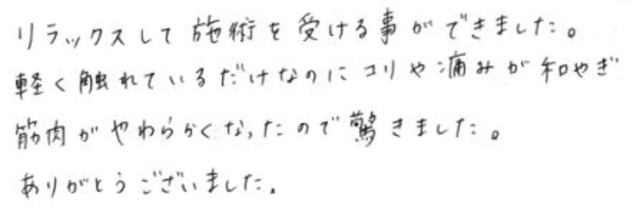 リラックスして施術を受ける事ができました。
軽く触れているだけなのにコリや痛みが和やぎ
筋肉がやわらかくなったので驚きました。
ありがとうございました。